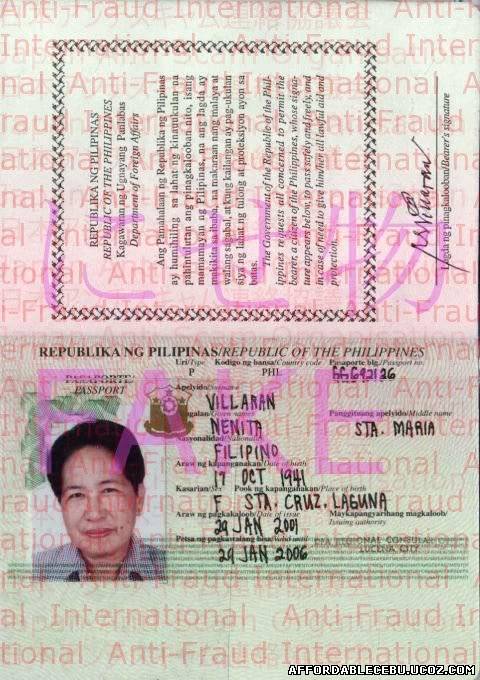 Anti-Fraud International
REPUBLIKA NG PILIPINAS
REPUBLIC OF THE PHILIPPINES
Kagawaran ng Ugnayang Panlabas
Department of Foreign Affairs
Ang Pamahalaan ng Republika ng Pilipinas
ay humihiling sa lahat ng kinauukulan na
pahintulutan ang pinagkalooban nito, isang
mamamayan ng Pilipinas, na ang lagda ay
makikita sa ibaba, na makaraan nang malaya at
walang sagabal, at kung kailangan ay pag-ukulan
siya ng lahat ng tulong at proteksiyon ayon sa
batas.
The Government of the Republic of the Phil-
ippines requests all concerned to permit the
bearer, a citizen of the Philippines, whose signa-
ture appears below, to pass safely and freely, and
in case of need to give him/her all lawful aid and
protection.
Lagda ng pinagkalooban/Bearer's signature
にせ物
REPUBLIKA NG PILIPINAS/REPUBLIC OF THE PHILIPPINES
Uri/Type Kodigo ng bansa/Country code Pasaporte blg./Passport no.
P PHL
PASAPORTE
PASSPORT
FAKE
Apelyido/Surname
VILLARAN
Pangalan/Given names Panggitnang apelyido/Middle name
NENITA STA. MARIA
Nasyonalidad/Nationality
FILIPINO
Araw ng kapanganakan/Date of birth
17 OCT 1941
Kasarian/Sex Pook ng kapanganakan/Place of birth
F STA. CRUZ, LAGUNA
Araw ng pagkakaloob/Date of issue Maykapangyarihang magkaloob/
29 JAN 2001 Issuing authority
Petsa ng pagkastalang bisa/Valid until
29 JAN 2006
REGIONAL CONSULAR OFFICE
LUCENA CITY
AFFORDABLECEBU.UCOZ.COM